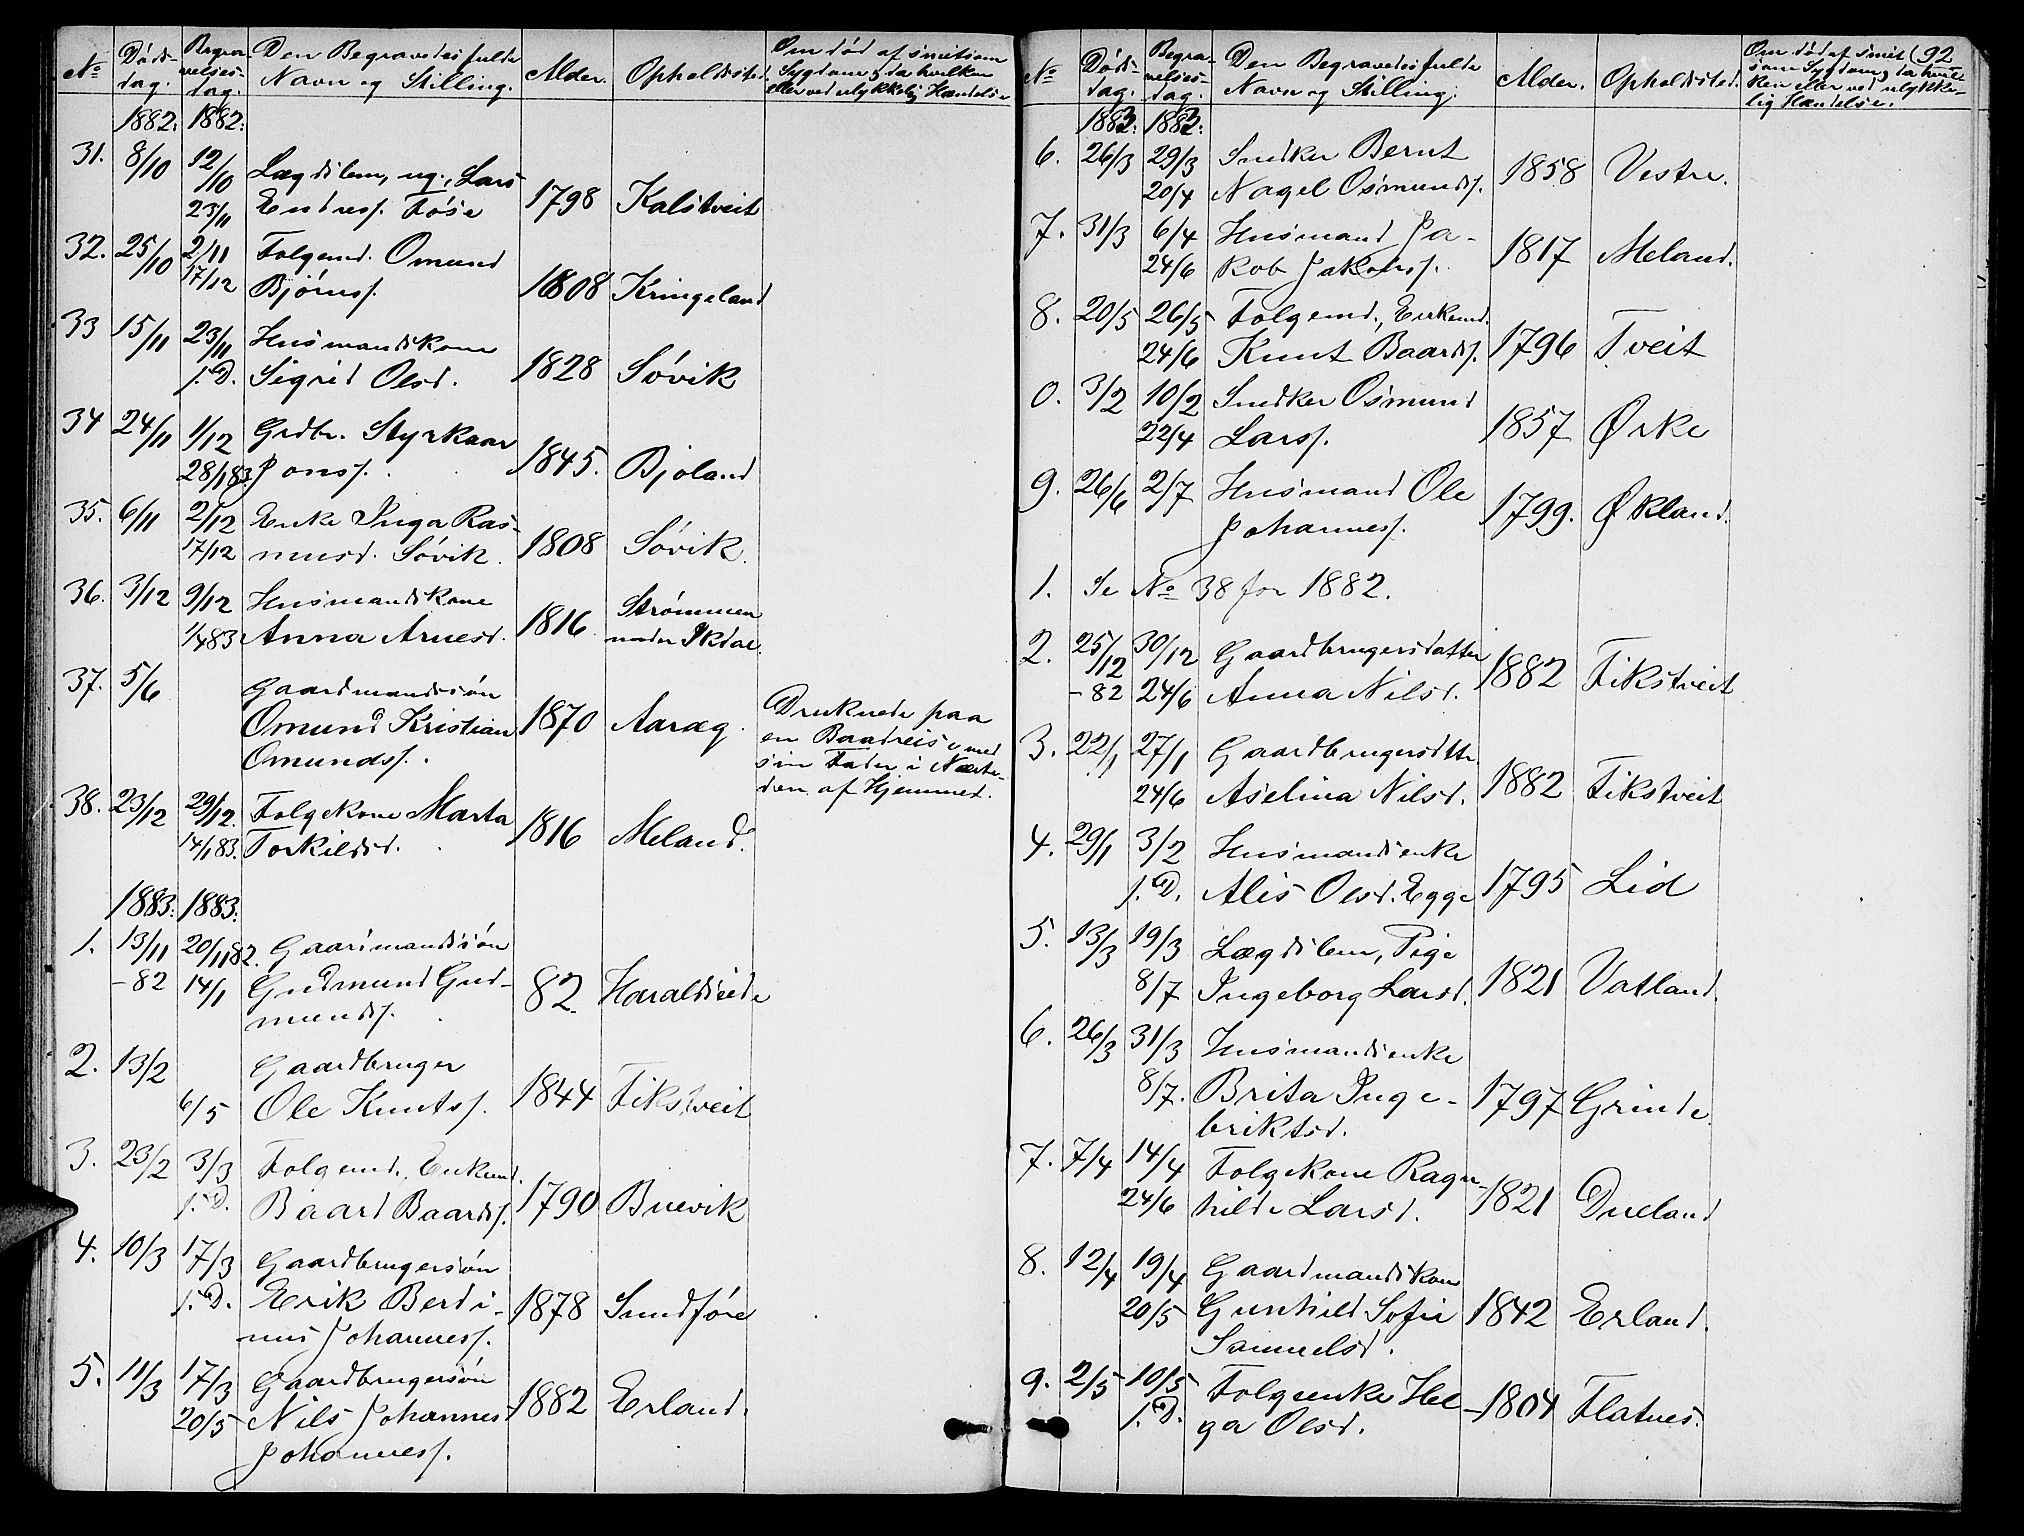 No Døds-dag. Begravelses-dag. Den Begravedes fulde Navn og Stilling. Alder. Opholdssted. Om død af smitsom Sygdom, da hvilken eller ved ulykkelig Hændelse
1882. 1882.
31. 8/10 12/10 Lægdslem, ug., Lars
23/11 Endress. Føse 1798 Kalstveit
32. 25/10 2/11 Folgemd. Omund
17/12 Bjørnss. 1808 Kringeland
33 15/11 23/11 Husmandskone
s. D. Sigrid Olsd. 1828 Søvik
34 24/11 1/12 Grdbr. Styrkaar
28/1 83. Jonss. 1845. Bjoland
35. 6/11 2/12 Enke Inga Ras-
17/12 musd. Søvik. 1808 Søvik.
36. 3/12 9/12 Husmandskone 1816 Strømmen
1/4 83 Anna Arnesd. under Økdal
37. 5/6 Gaardmandssøn
Omund Kristian 1870 Aarag. Druknede paa
Omundss. en Baadreise med
sin Fader i Nærhe-
den af Hjemmet.
38. 23/12 29/12. Folgekone Marta
14/1 83. Torkildsd. 1816 Meland.
1883. 1883.
1. 13/11 20/11 82. Gaardmandssøn
-82 14/1 Gudmund Gud- 82. Haraldseide
munds.
2. 13/2 Gaardbruger
6/5 Ole Knutss. 1844 Fikstveit
3. 23/2 3/3 Folgemd., Enkemd.
s. D. Baard Baardss. 1790 Buevik
4. 10/3 17/3 Gaardbrugersøn
s. D. Erik Berdi- 1878 Sundføre
nus Johanness.
5. 11/3 17/3 Gaardbrugersøn
20/5 Nils Johannes 1882 Erland.
Johanness.
92
No Døds-dag. Begravelses-dag. Den Begravedes fulde Navn og Stilling. Alder. Opholdssted. Om død af smitsom Sygdom, da hvilken eller ved ulykkelig Hændelse.
1883. 1883.
6. 26/3 29/3 Snedker Bernt
20/4 Nagel Osmundss. 1858 Vestre.
7. 31/3 6/4 Husmand Ja-
24/6 kob Jakobss. 1817 Meland.
8. 20/5 26/5 Folgemd., Enkemd.
24/6 Knut Baardss. 1796 Tveit
0. 3/2 10/2 Snedker Osmund
22/4 Larss. 1857 Ørke
9. 26/6 2/7 Husmand Ole
Johanness. 1799. Økland.
1. Se No 38 for 1882.
2. 25/12 30/12 Gaardbrugersdatter
-82 24/6 Anna Nilsd. 1882 Fikstveit
3. 22/1 27/1 Gaardbrugersdtte
24/6 Aselina Nilsd. 1882 Fikstveit
4. 29/1 3/2 Husmandsenke
s. D. Alis Olsd. Egge 1795 Lid
5. 13/3 19/3 Lægdslem, Pige
8/7 Ingeborg Larsd. 1821 Vatland.
6. 26/3 31/3 Husmandsenke
8/7. Brita Inge- 1797 Grinde.
briktsd.
7. 7/4 14/4 Folgekone Ragn-
24/6 hilde Larsd. 1821 Dueland
8. 12/4 19/4 Gaardmandskone
20/5 Gunhild Sofie 1842 Erland.
Samuelsd.
9. 2/5 10/5 Folgeenke Hel-
s. D. ga Olsd. 1804 Flatnes.